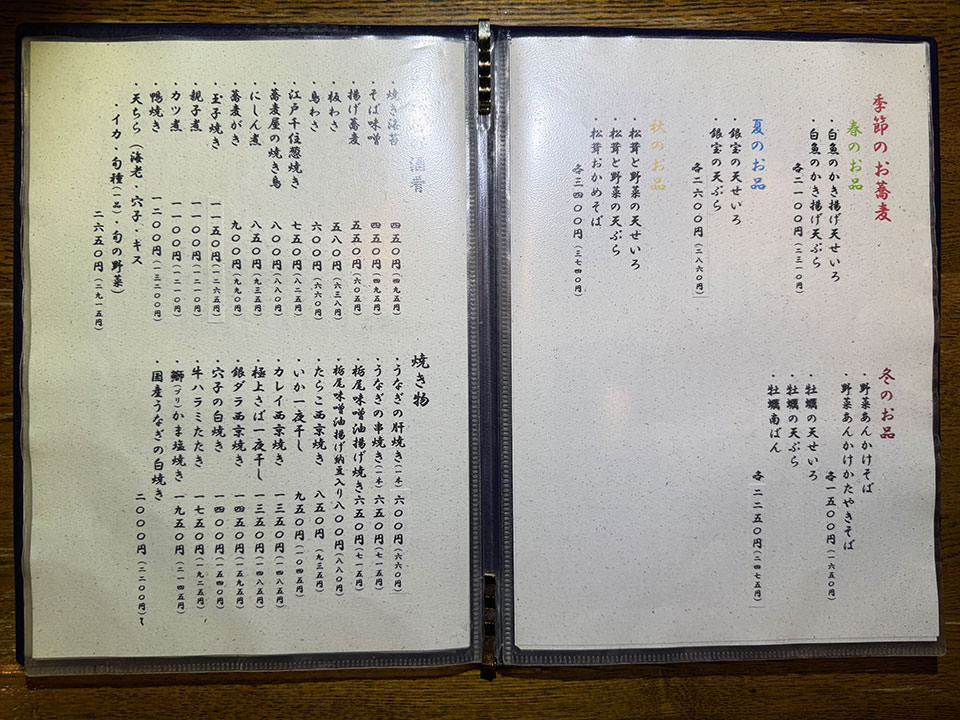 季節のお蕎麦
春のお品
・白魚のかき揚げ天せいろ
・白魚のかき揚げ天ぷら
各二一〇〇円(二三一〇円)
夏のお品
・銀宝の天せいろ
・銀宝の天ぷら
各二六〇〇円(二八六〇円)
秋のお品
・松茸と野菜の天せいろ
・松茸と野菜の天ぷら
・松茸おかめそば
各三四〇〇円(三七四〇円)
冬のお品
・野菜あんかけそば
・野菜あんかけかたやきそば
各一五〇〇円(一六五〇円)
・牡蠣の天せいろ
・牡蠣の天ぷら
・牡蠣南ばん
各二二五〇円(二四七五円)
酒肴
・焼き海苔 四五〇円(四九五円)
・そば味噌 四五〇円(四九五円)
・揚げ蕎麦 五五〇円(六〇五円)
・板わさ 五八〇円(六三八円)
・鳥わさ 六〇〇円(六六〇円)
・江戸千住葱焼き 七五〇円(八二五円)
・蕎麦屋の焼き鳥 八〇〇円(八八〇円)
・にしん煮 八五〇円(九三五円)
・蕎麦がき 九〇〇円(九九〇円)
・玉子焼き 一一五〇円(一二六五円)
・親子煮 一一〇〇円(一二一〇円)
・カツ煮 一一〇〇円(一二一〇円)
・鴨焼き 一二〇〇円(一三二〇〇円)
・天ちら(海老・穴子・キス
・イカ・旬種(一品)・旬の野菜)
二六五〇円(二九一五円)
焼き物
・うなぎの肝焼き(一本) 六〇〇円(六六〇円)
・うなぎの串焼き(一本) 六五〇円(七一五円)
・栃尾味噌油揚げ焼き 六五〇円(七一五円)
・栃尾味噌油揚げ納豆入り 八〇〇円(八八〇円)
・たらこ西京焼き 八五〇円(九三五円)
・いか一夜干し 九五〇円(一〇四五円)
・カレイ西京焼き 一三五〇円(一四八五円)
・極上さば一夜干し 一三五〇円(一四八五円)
・銀ダラ西京焼き 一四五〇円(一五九五円)
・穴子の白焼き 一四〇〇円(一五四〇円)
・牛ハラミたたき 一七五〇円(一九二五円)
・鰤(ブリ)かま塩焼き 一九五〇円(二一四五円)
・国産うなぎの白焼き
二〇〇〇円(二二〇〇円)~